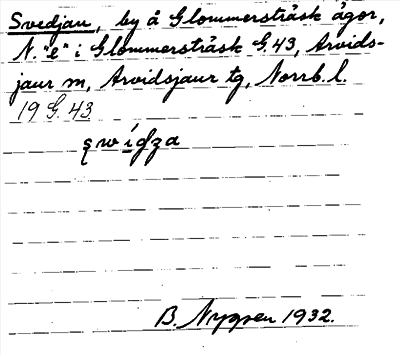 Svedjan, by å Glommersträsk ägor,
N. "e" i Glommersträsk G. 43, Arvids-
jaur m, Arvidsjaur tg, Norrb. l.
19 G. 43
B. Nygren 1932.